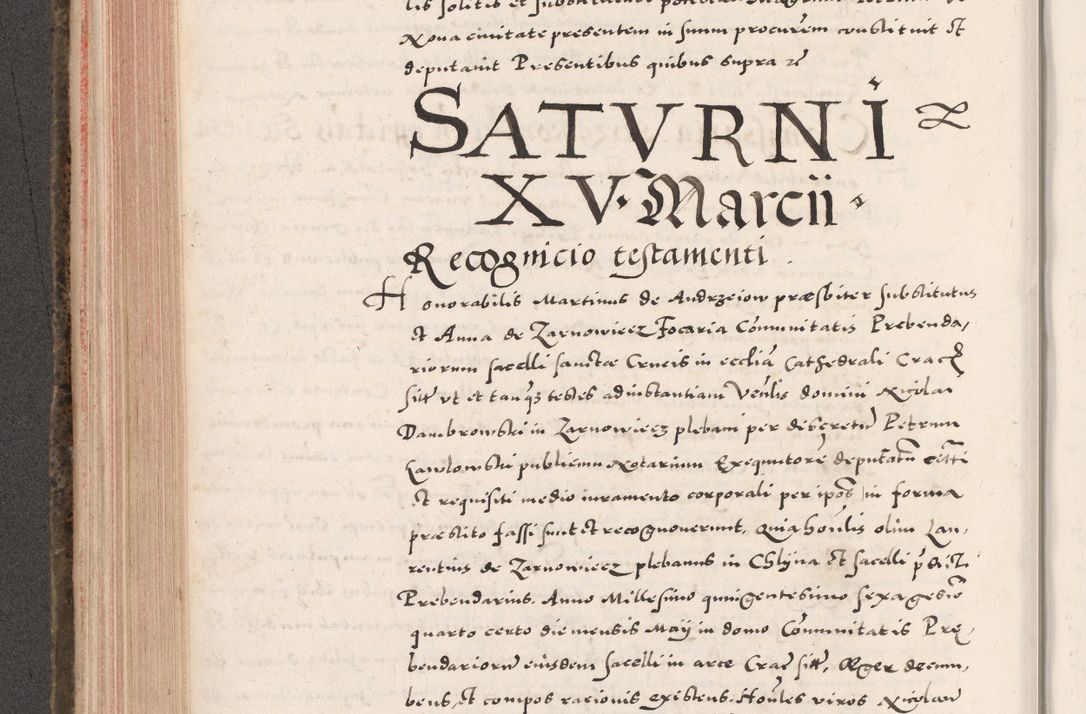 Noua ciuitate presentem in suum procurem constituit et
deputauit Presentibus quibus supra
SATVRNI
XV. Marcii
Recognicio testamenti.
Honorabilis Martinus de Andrzeiow præsbiter substitutus
et Anna de Zarnowiecz Focaria Comunitatis Prebenda,
riorum sacelli sanctæ Crucis in ecclia Cathedrali Crac
sitt vt et tanq3 testes ad instantiam Venlis domini Nicolai
Dambrowski in Zarnowiecz plebani per discretu Petrum
Kawlowski publicum Notarium Exequutore deputatu citti
et requisiti medio iuramento corporali per ipos in forma
præstito fassi sunt et recognouerunt. Quia honlis olim Lau,
rentius de Zarnowiecz plebanus in Chlyna et sacelli pdicti
Prebendarius. Anno Millesimo quingentesimo sexagesio
quarto certo die mensis Maij in domo Comunitatis Pre,
bendarioru eiusdem sacelli in arce Crac sitt. Æger decum,
bens, et compos racionis existens. Honles viros Nicolau